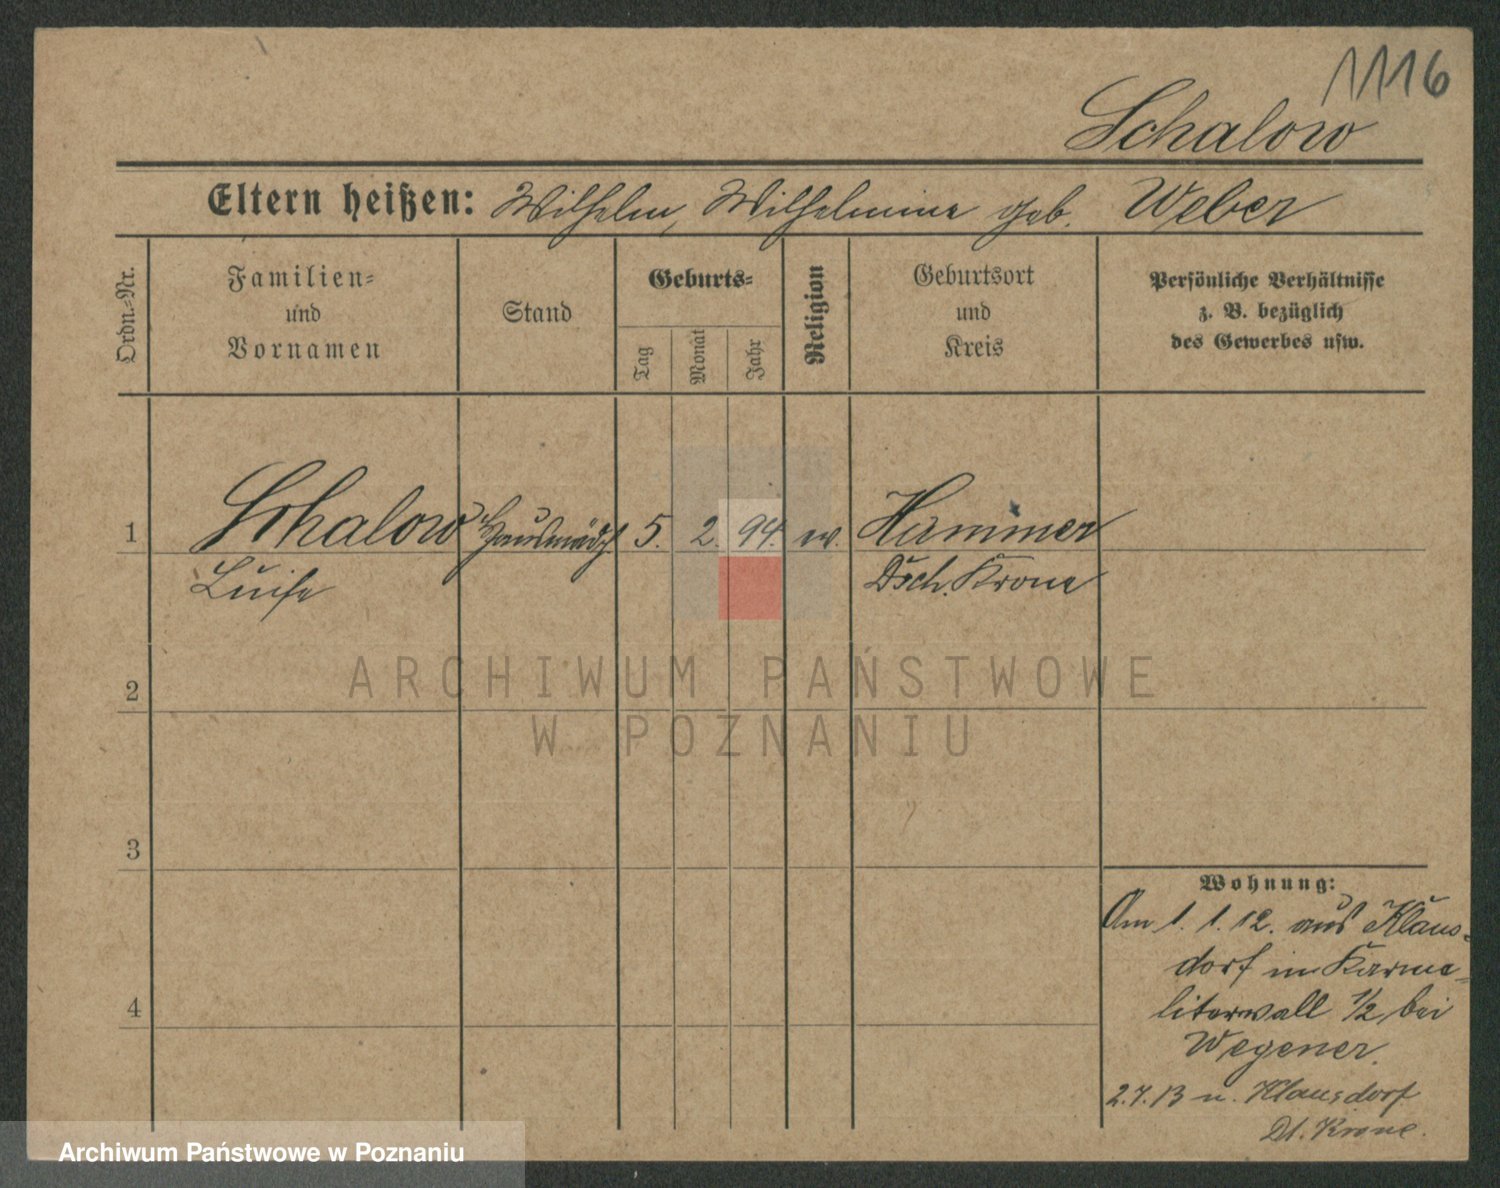 1116
Schalow
Eltern heißen: Wilhelm, Wilhelmine geb. Weber
Ordn.-Nr.
Familien-
und
Vornamen
Stand
Geburts-
Tag
Monat
Jahr
Religion
Geburtsort
und
Kreis
Persönliche Verhältnisse
z. B. bezüglich
des Gewerbes usw.
1 Schalow Hausmädch. 5. 2. 94. ev. Hammer
Luise Dsch. Krone
2
3
4
Wohnung:
Am 1. 1. 12. aus Klaus-
dorf in Karme-
literwall 1/2 bei
Wegener.
2.7.13 n. Klausdorf
Dt. Krone.
ARCHIWUM PAŃSTWOWE
W POZNANIU
Archiwum Państwowe w Poznaniu